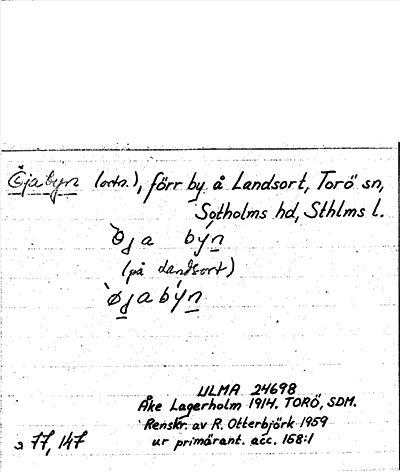 Öjabyn (ortn.), förr by å Landsort, Torö sn,
Sotholms hd, Sthlms l.
Öja býn
(på Landsort)
`øjabýn
ULMA 24698
Åke Lagerholm 1914. TORÖ, SDM.
Renskr. av R. Otterbjörk 1959
ur primärant. acc. 158:1
s 77, 147